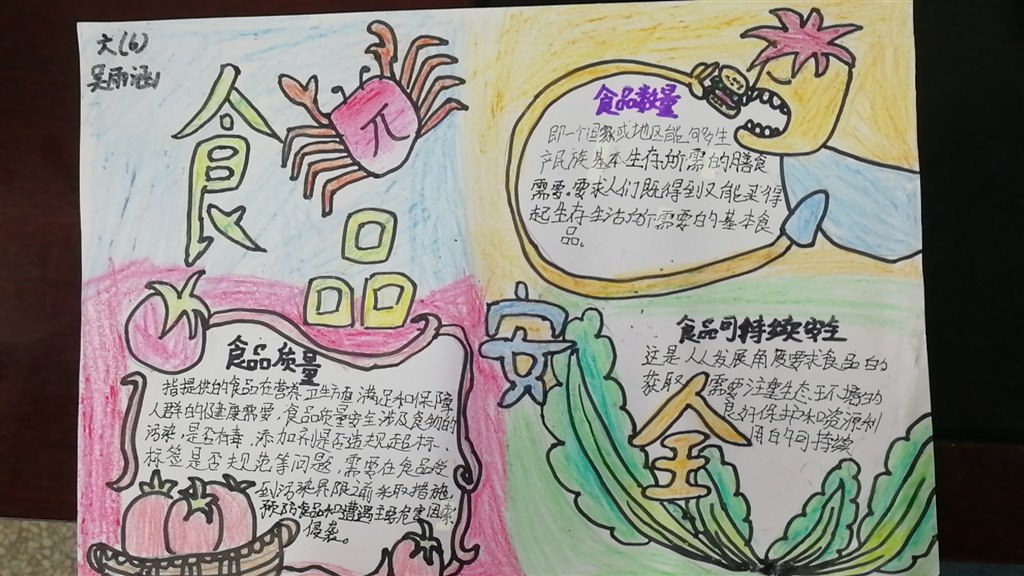 六(6)
吴雨涵
食品
安全
食品数量
即一个国家或地区能够生
产民族基本生存所需的膳食
需要。要求人们既得到又能买得
起生存生活所需要的基本食
品。
食品质量
指提供的食品在营养,卫生方面满足和保障
人群的健康需要,食品质量安全涉及食物的
污染,是否有毒,添加剂是否违规超标、
标签是否规范等问题,需要在食品受
到污染界限之前采取措施,
预防食品和遭遇主要危害因素
侵袭。
食品可持续安全
这是从发展角度要求食品的
获取 需要注重生态环境的
良好保护和资源利
用的可持续